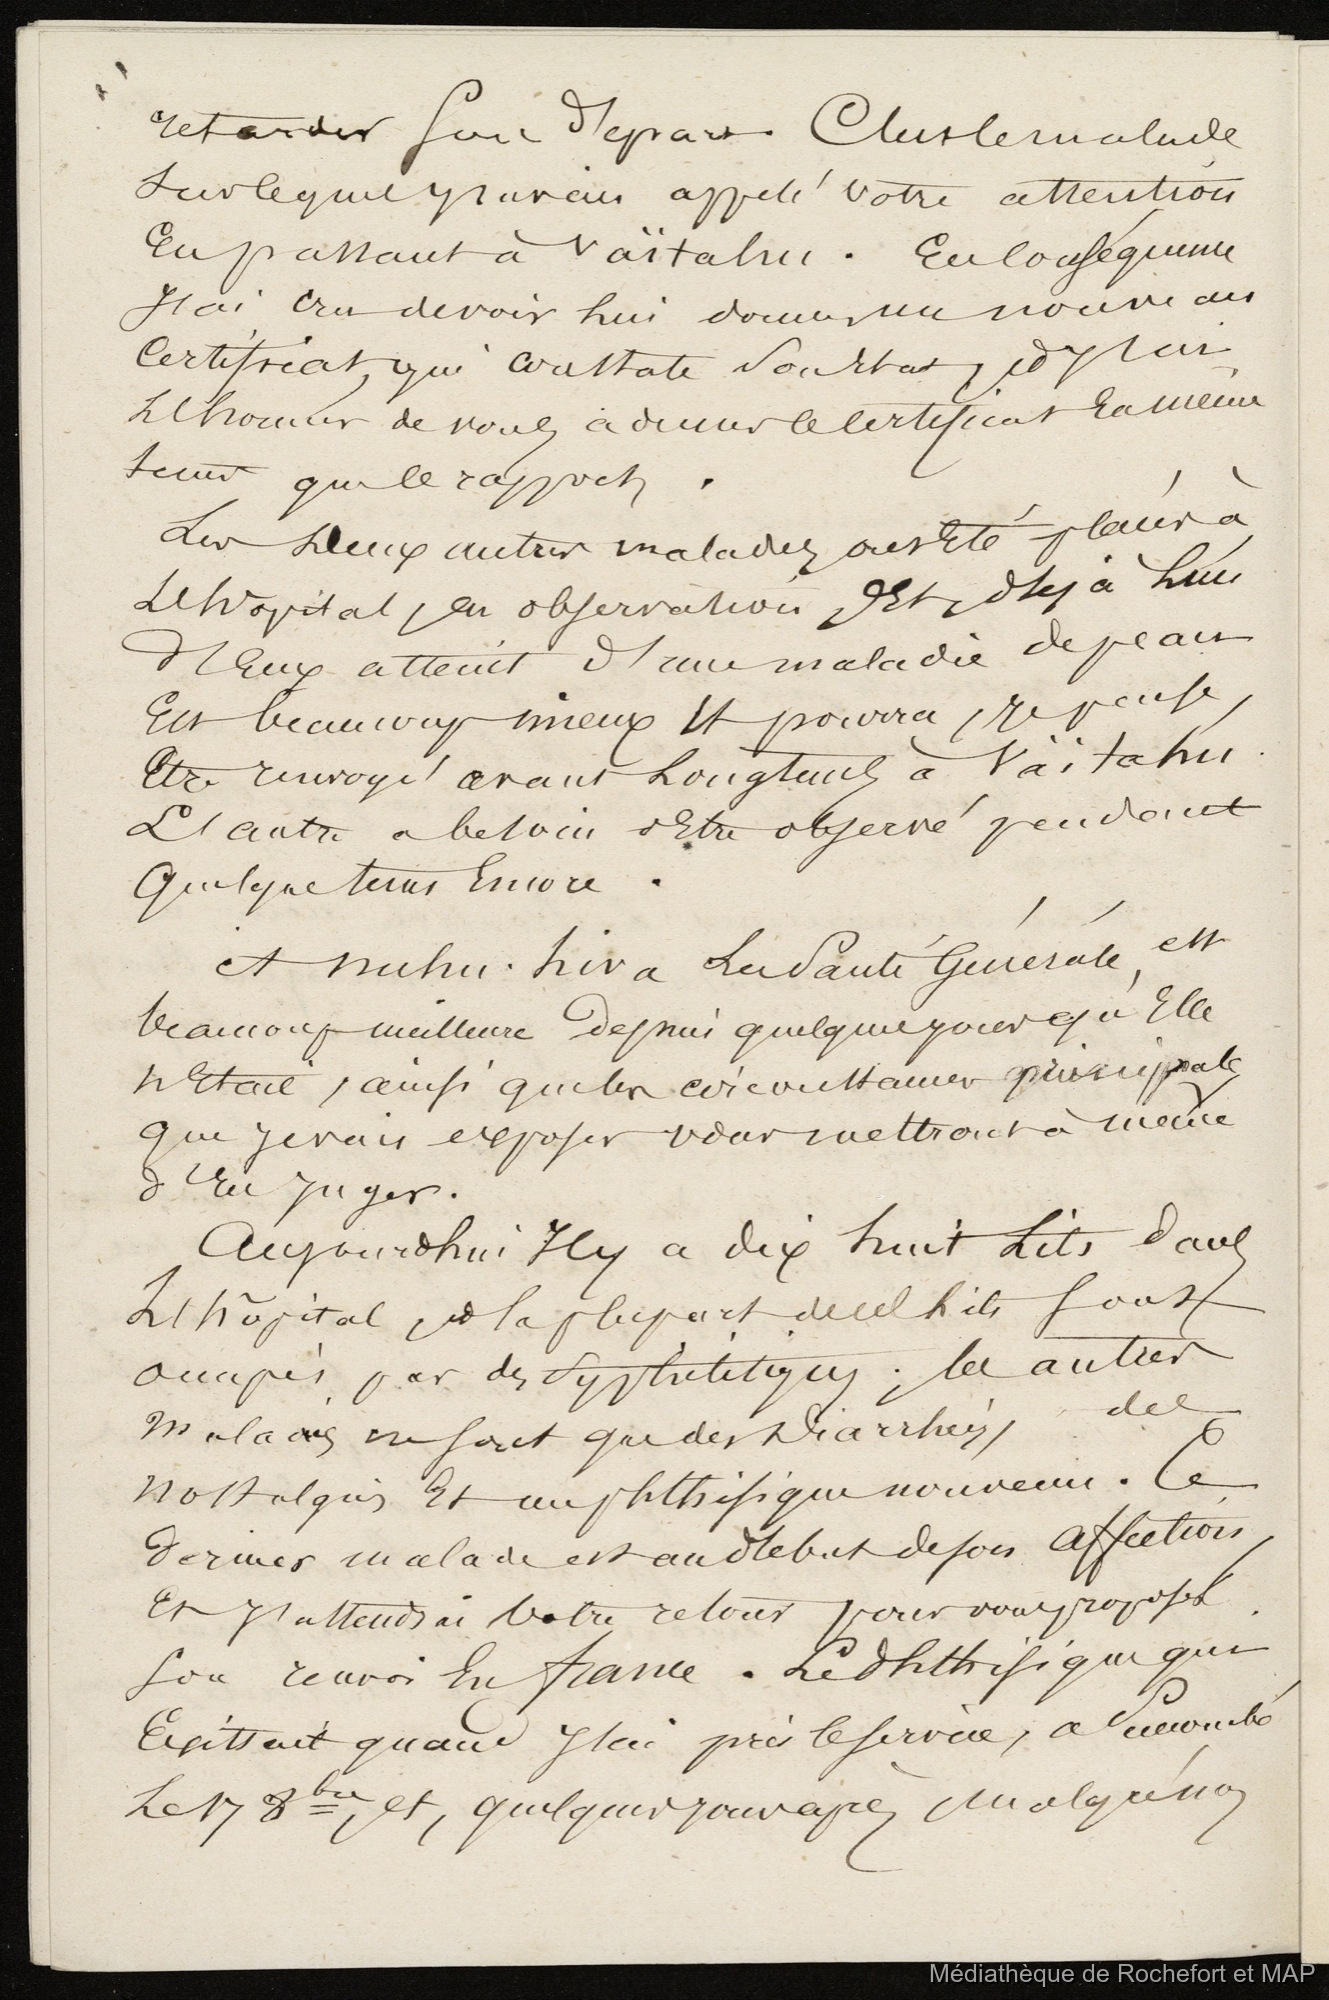 retarder son départ. C'est le malade
sur lequel j'avais appelé votre attention
En passant à Vaïtahu. En conséquence
J'ai cru devoir lui donner un nouveau
Certificat, qui constate son état, et j'ai
L'honneur de vous adresser le certificat En même
tems que le rapport.
Les deux autres malades ont Eté placés à
L'hôpital, en observation Et, déjà L'un
d'Eux atteint d'une maladie de peau
Est beaucoup mieux Et pourra, je pense,
Etre renvoyé avant Longtems à Vaïtahu.
L'autre a besoin d'Etre observé pendant
Quelque tems Encore.
à nuhu-hiva La Santé Générale, est
beaucoup meilleure Depuis quelques jours qu'Elle
n'Etait, ainsi que les circonstances principales
que je vais exposer vous mettront à même
d'En juger.
Aujourd'hui Il y a dix huit Lits dans
L'hôpital, et la plupart de ces Lits sont
occupés par des Syphilitiques; les autres
Malades ne sont que des Diarrhées, des
Nostalgies Et un phthisique nouveau. Ce
dernier malade est au début de son affection,
Et j'attendrai Votre retour pour vous proposer
son renvoi En france. Le Phthisique qui
Existait quand J'ai pris le service, a Succombé
Le 17 8bre, et, quelques jours après, malgré nos
Médiathèque de Rochefort et MAP